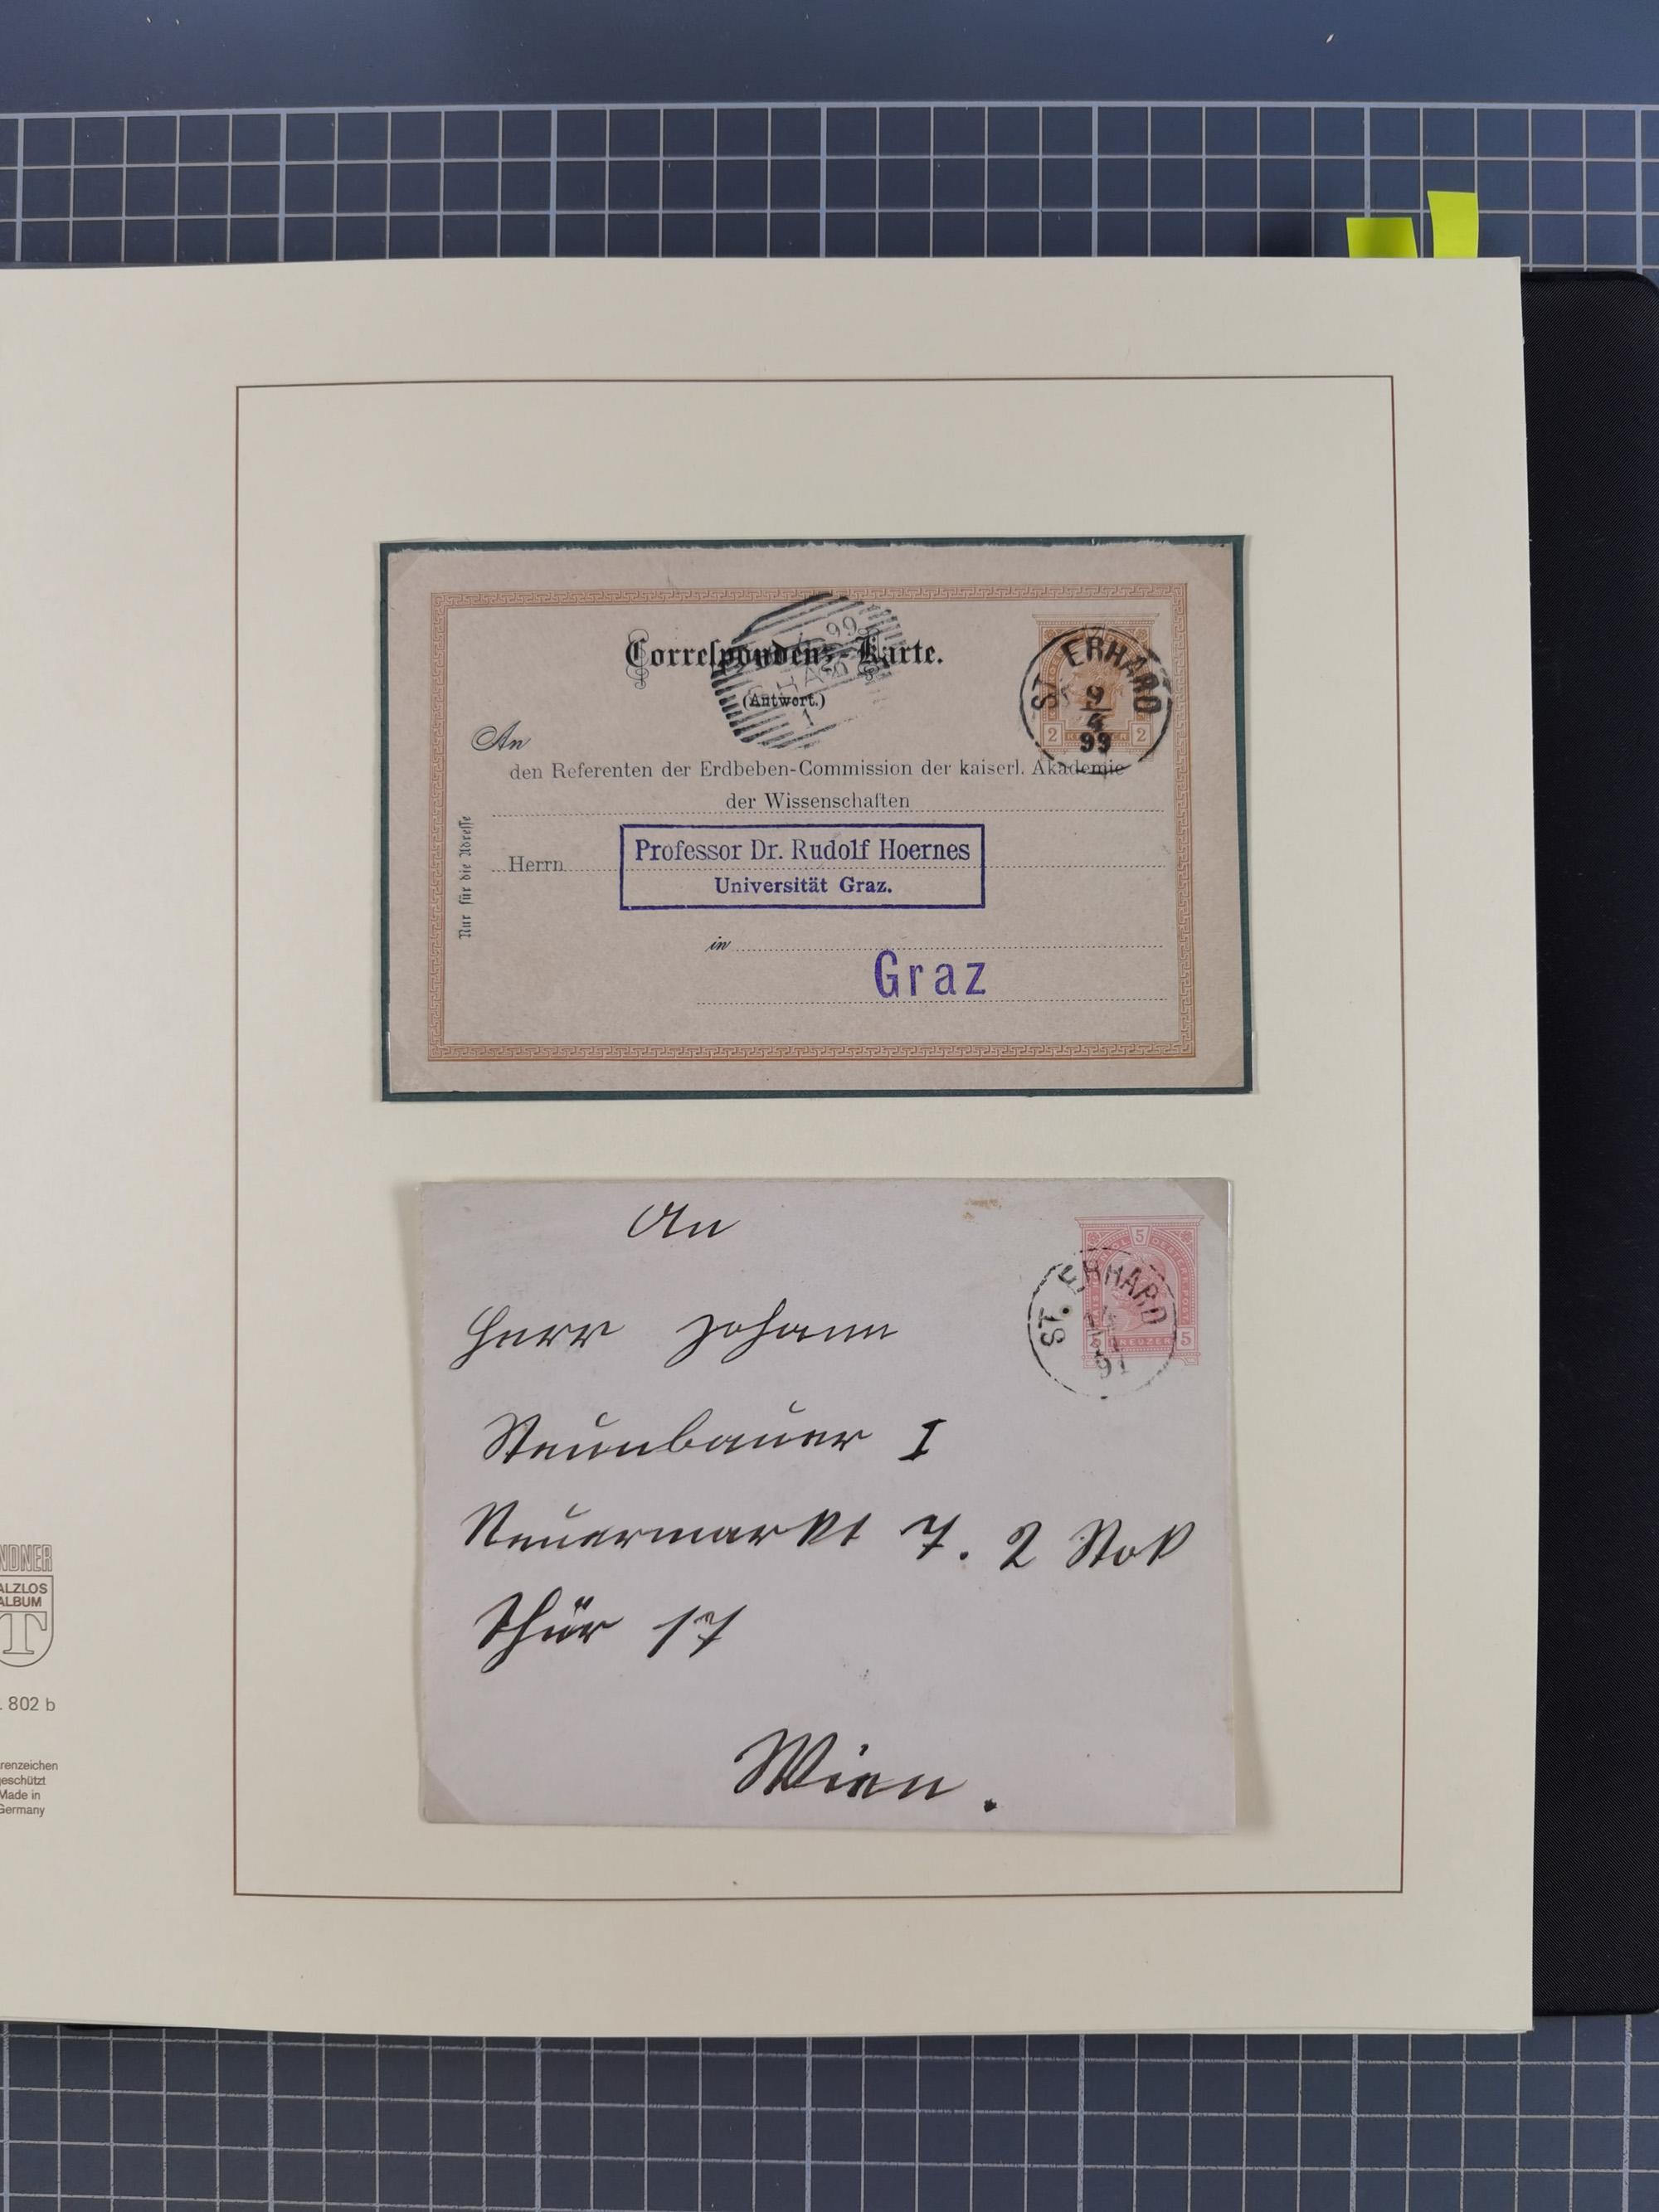 Correspondenz-Karte.
(Antwort.)
99
ST. ERHARD
9
4
99
2 KREUZER 2
An
den Referenten der Erdbeben-Commission der kaiserl. Akademie
der Wissenschaften
Nur für die Adresse
Herrn
Professor Dr. Rudolf Hoernes
Universität Graz.
in
Graz
An
5
ST. ERHARD
5 KREUZER 5
Herr Johann
Neunbauer I
Neuermarkt 7. 2 Stok
Thür 17
Wien.
NDNER
ALZLOS
ALBUM
T
. 802 b
renzeichen
eschützt
Made in
Germany